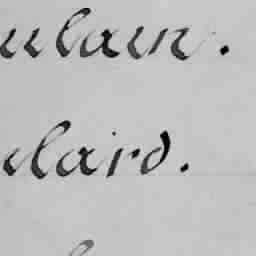 ulain.
lard.